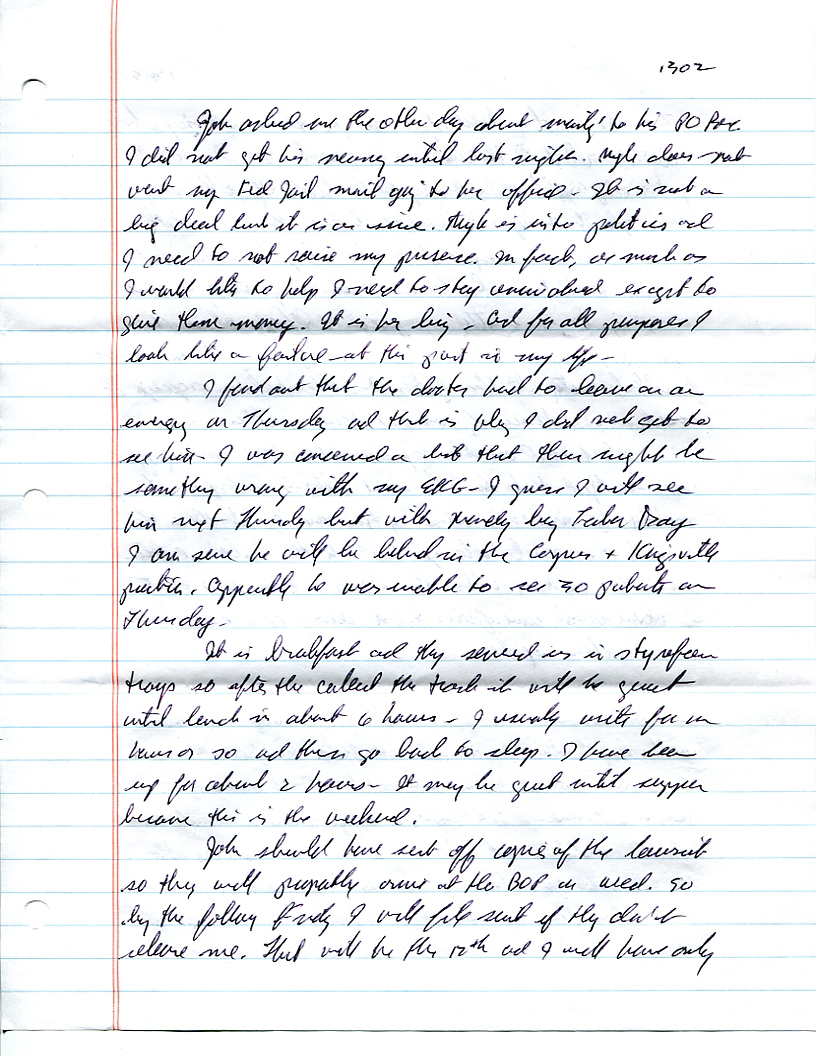 1302
John asked me the other day about mail to his PO Box.
I did not get his money until last night. does not
want my Fed Jail mail going to her office - It is not a
big deal but it is an issue. is into politics ad
I need to not raise my presence. In fact, as much as
I would like to help I need to stay uninvolved except to
give them money. It is her - ad for all purposes I
look like a failure - at this point in my life -
I found out that the doctor had to leave on an
emergency on Thursday ad that is why I did not get to
see him - I was concerned a bit that there might be
something wrong with my EKG - I guess I will see
him next Thursday but with being Labor Day
I am sure he will be behind in the Corpus + Kingsville
practice. Apparently he was unable to see 30 patients on
Thursday -
It is breakfast ad they served us in styrofoam
trays so after the called the trash it will be quiet
until lunch in about 6 hours - I usually write for an
hour or so ad then go back to sleep. I have been
up for about 2 hours - It may be quiet until supper
because this is the weekend.
John should have sent off copies of the lawsuit
so they will probably arrive at the BOP on Wed. So
by the following Friday I will file suit if they don't
release me. That will be the 12th ad I will have only